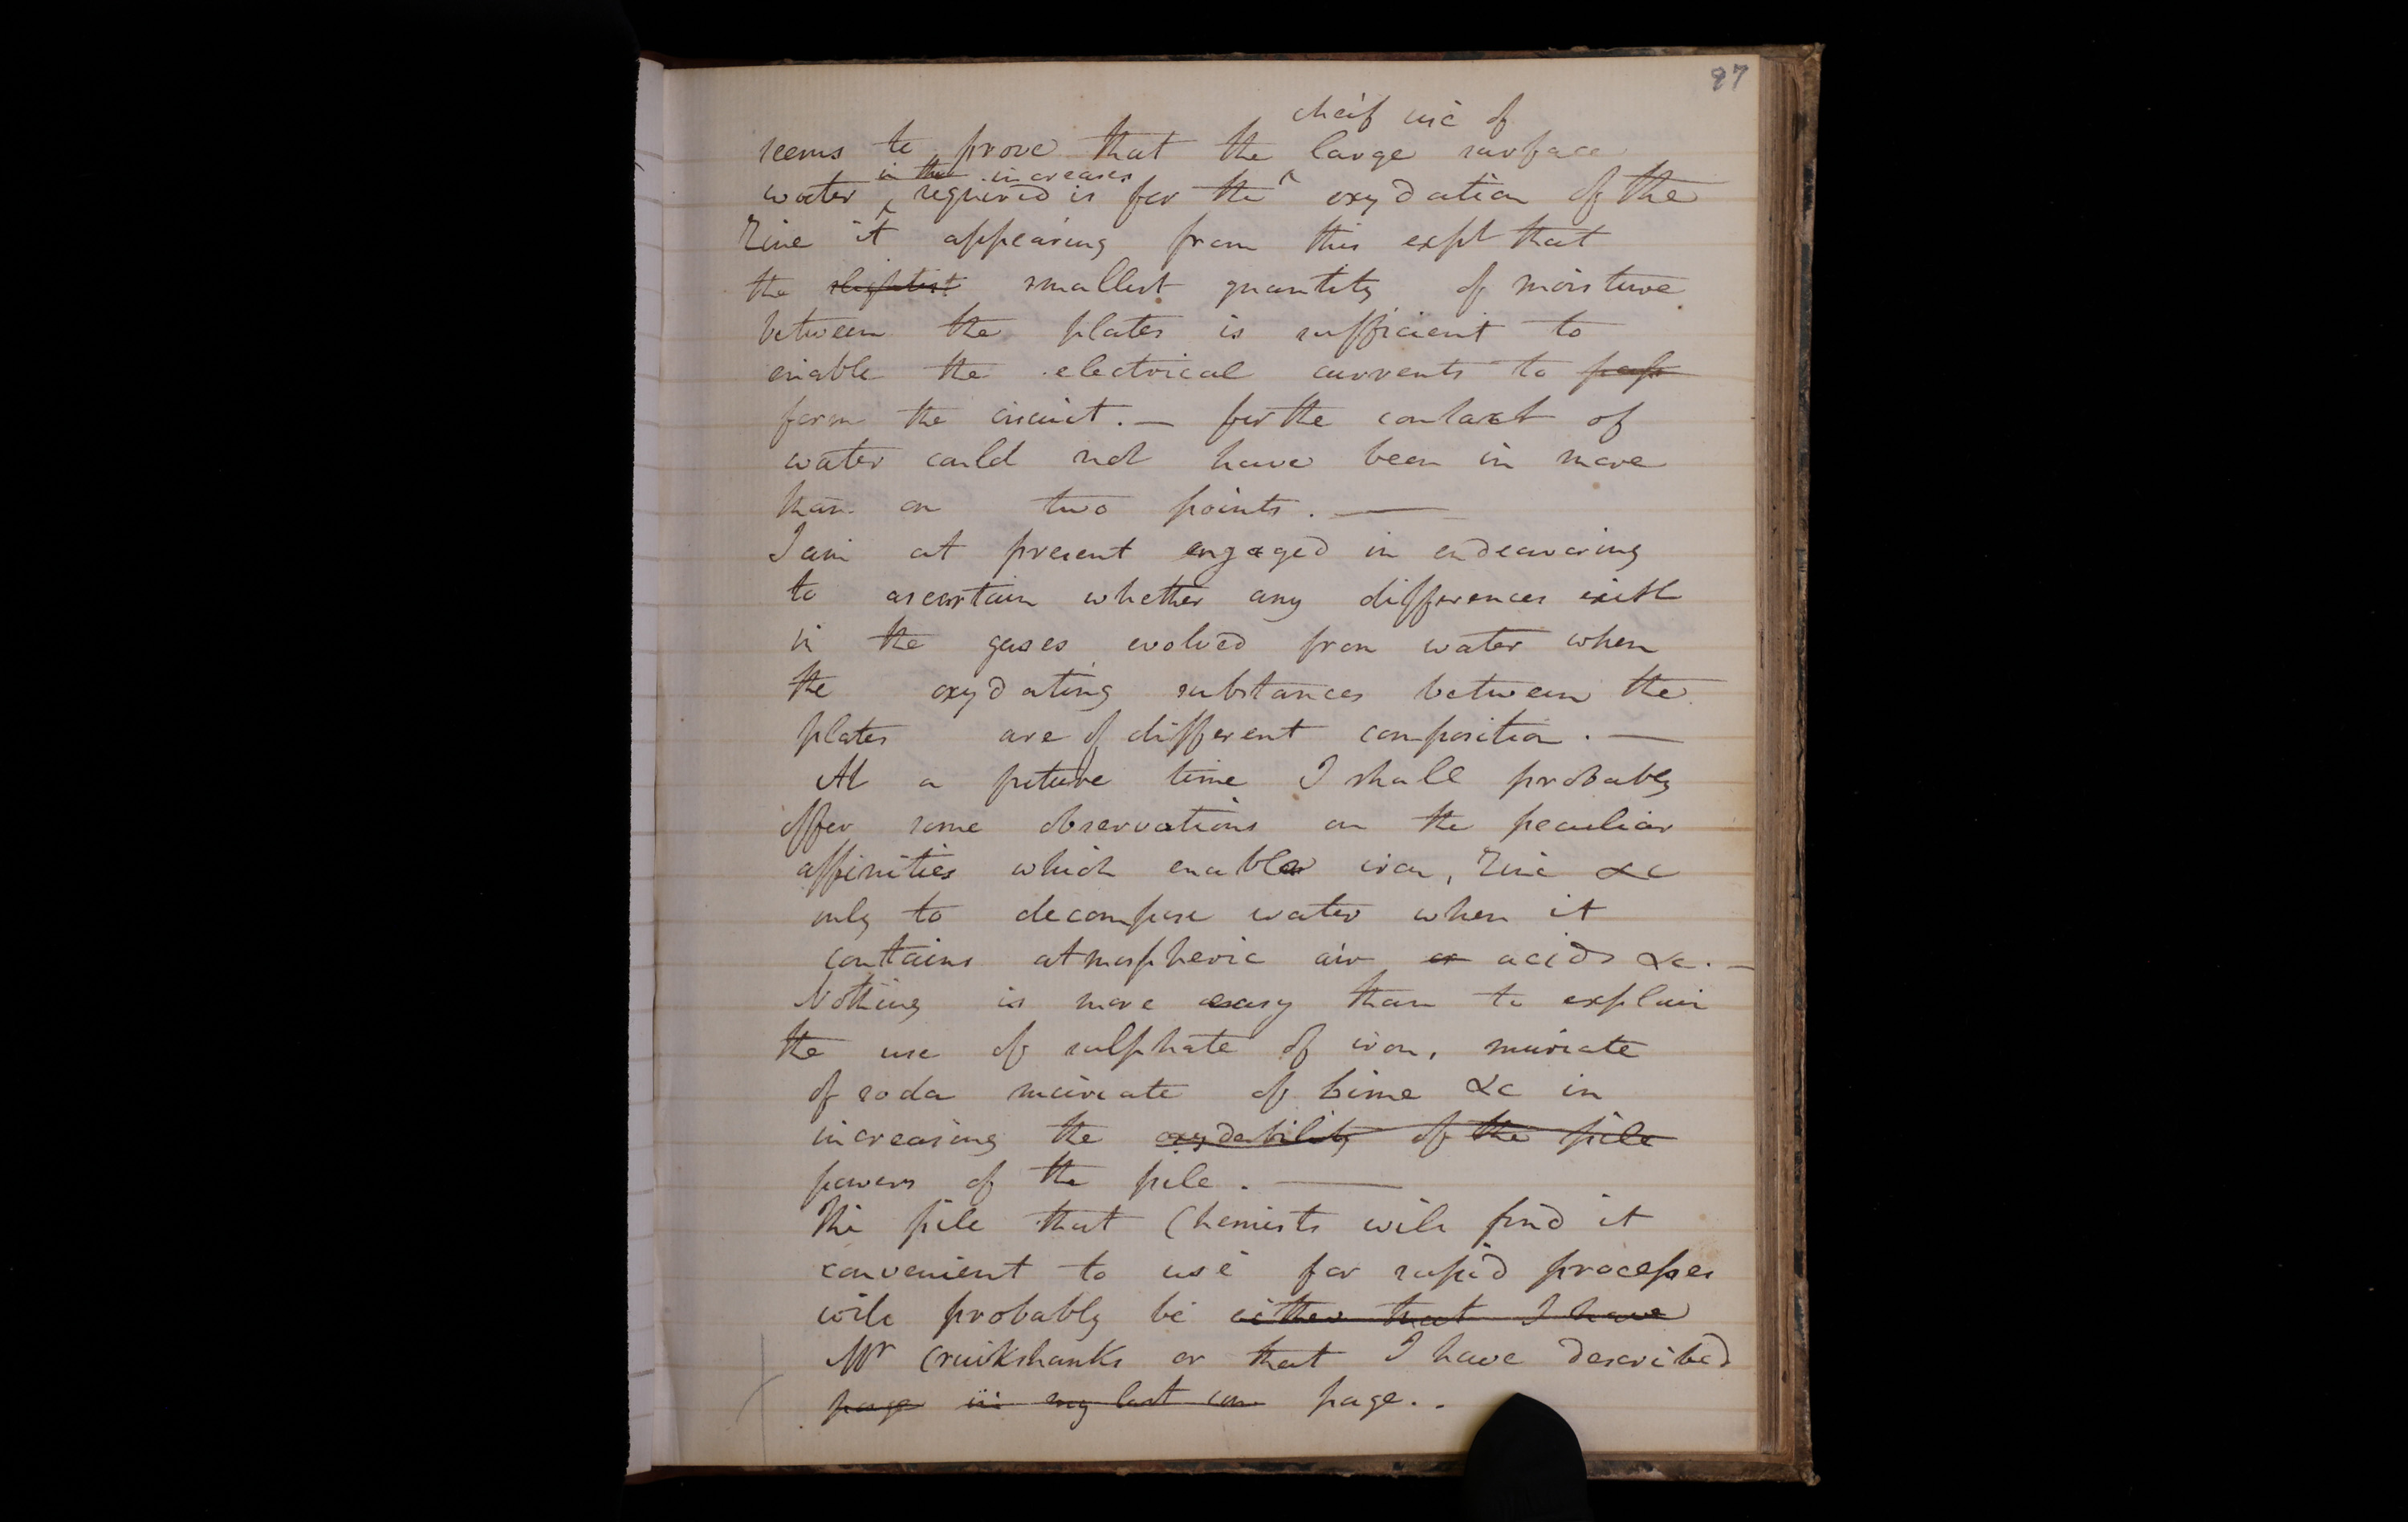 97
cheif use of
seems to prove that the large surface
in the increases
water required is for the oxydation of the
Zinc it appearing from this expt that
the slightest smallest quantity of moisture
between the plates is sufficient to
enable the electrical currents to pass
form the circuit. — for the contact of
water could not have been in more
than on two points. —
I am at present engaged in endeavoring
to ascertain whether any differences exist
in the gases evolved from water when
the oxydating substances between the
plates are of different composition. —
At a future time I shall probably
offer some observations on the peculiar
affinities which enable iron, Zinc &c
only to decompose water when it
contains atmospheric air or acids &c. —
Nothing is more easy than to explain
the use of sulphate of iron, muriate
of soda muriate of Lime &c in
increasing the oxydability of the pile
powers of the pile. —
The pile that Chemists will find it
convenient to use for rapid processes
will probably be either that I have
Mr Cruikshanks or that I have described
page in my last com page..